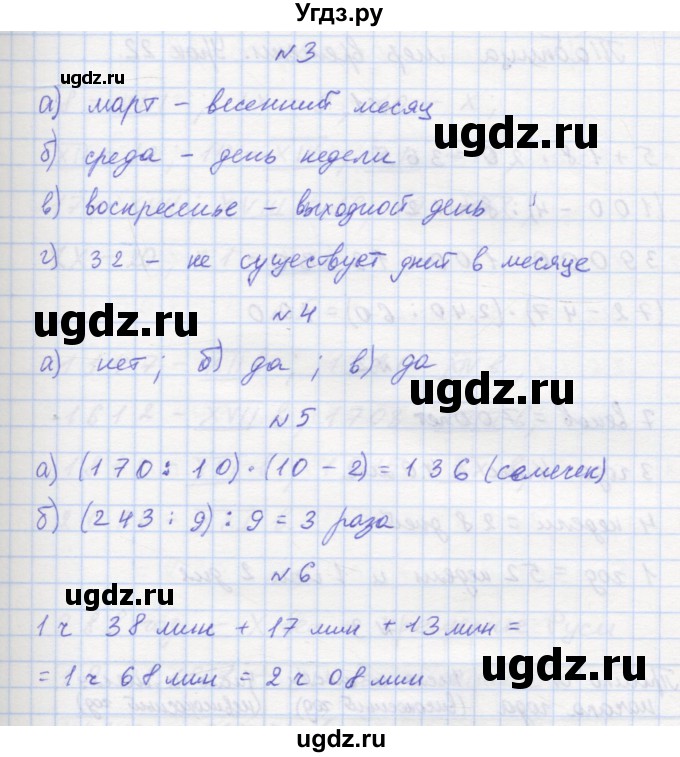 Угдз.ру
№3
ugdz.ru
а) март – весенний месяц
ugdz.ru
б) среда – день недели
в) воскресенье – выходной день
г) 32 – не существует дней в месяце
ugdz.ru
№4
а) нет; б) да; в) да
ugdz.ru
№5
а) (170 : 10) · (10 – 2) = 136 (семечек)
б) (243 : 9) : 9 = 3 раза
№6
ugdz.ru
1 ч 38 мин + 17 мин + 13 мин =
ugdz.ru
= 1 ч 68 мин = 2 ч 08 мин
ugdz.ru